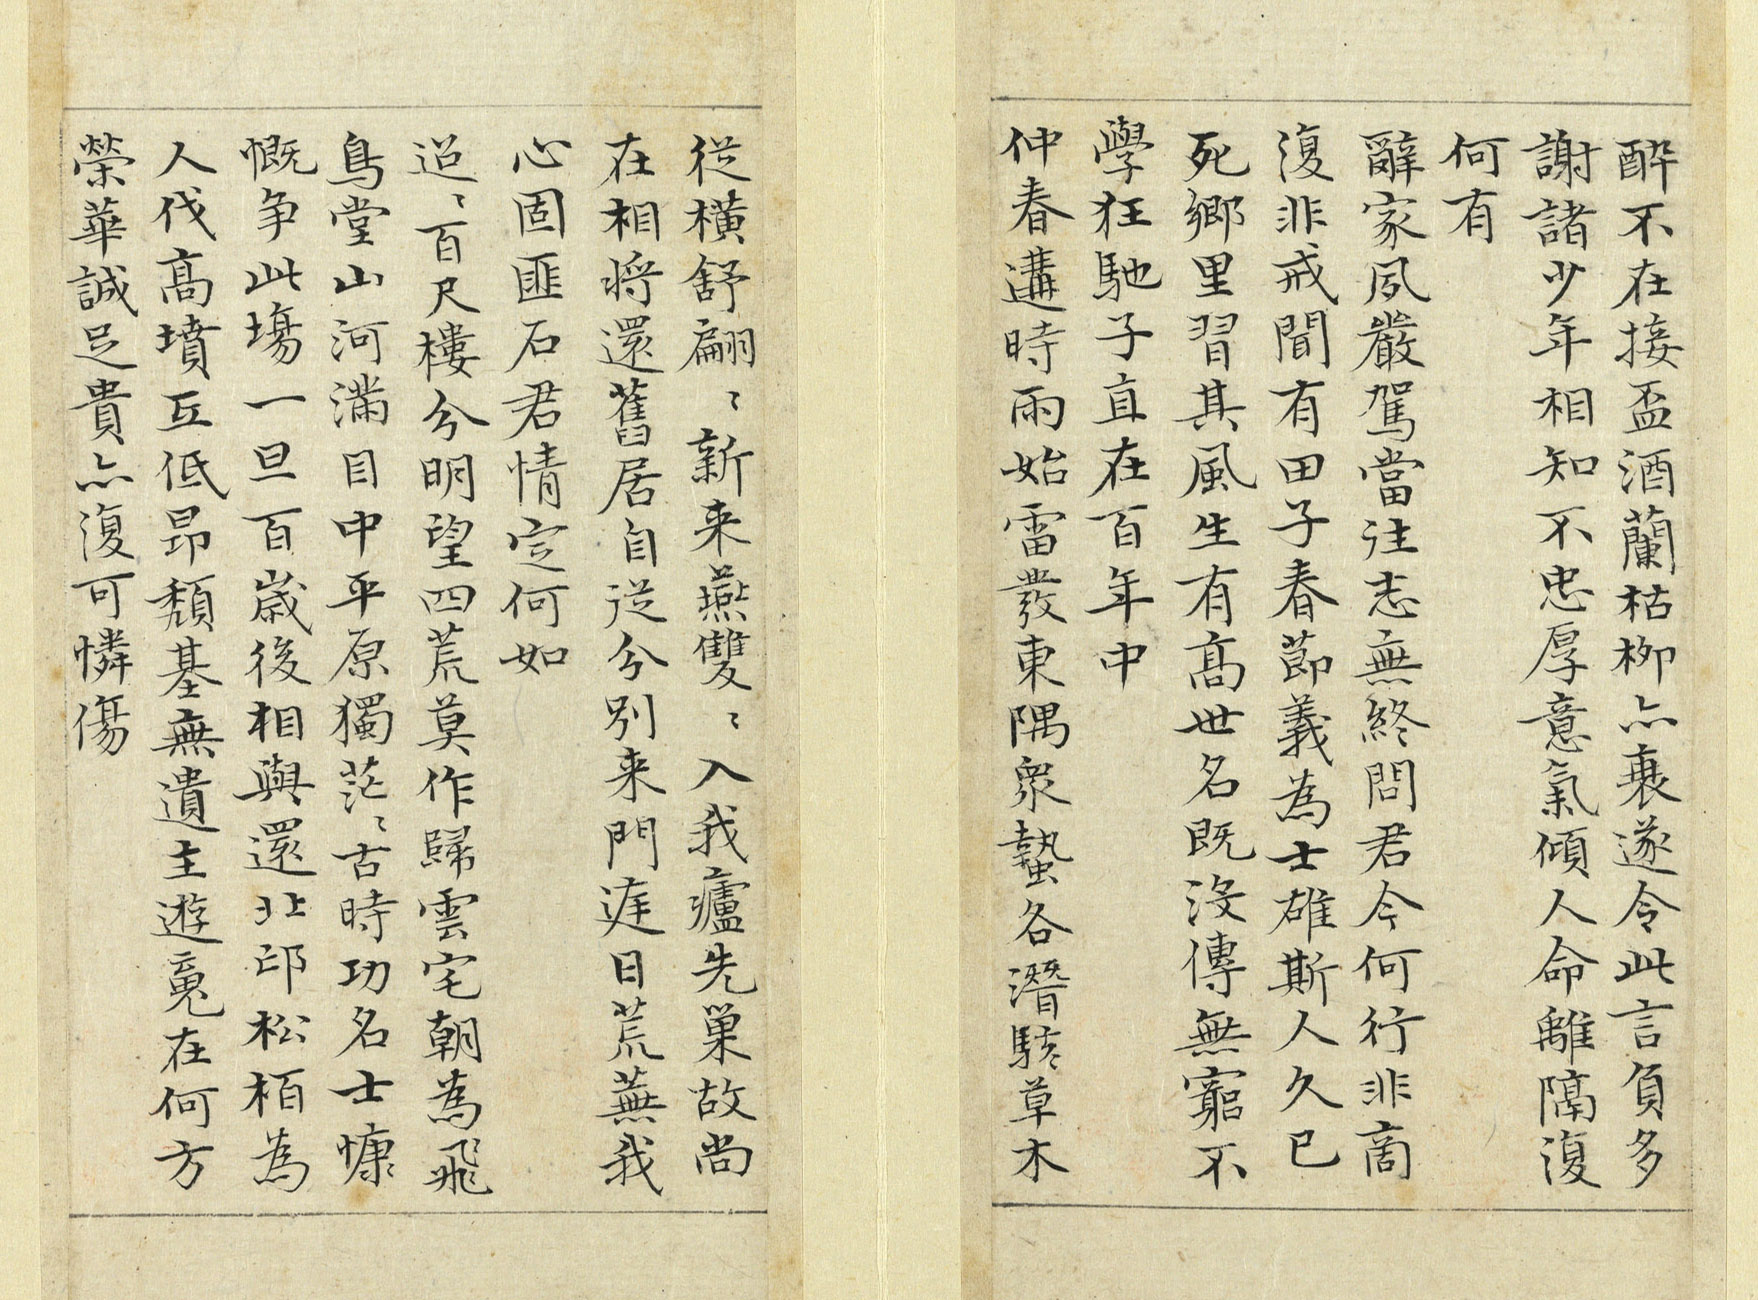 醉不在接盃酒蘭枯柳亦衰遂令此言負多
謝諸少年相知不忠厚意氣傾人命離隔復
何有
辭家夙嚴駕當往志無終問君今何行非商
復非戒聞有田子春節義為士雄斯人久已
死鄉里習其風生有髙世名既沒傳無窮不
學狂馳子直在百年中
仲春遘時雨始雷發東隅衆蟄各潛駭草木
從橫舒翩〻新来燕雙〻入我廬先巢故尚
在相將還舊居自從分別来門庭日荒蕪我
心固匪石君情定何如
迢〻百尺樓分明望四荒莫作歸雲宅朝為飛
鳥堂山河滿目中平原獨茫〻古時功名士慷
慨争此場一旦百歲後相與還北邙松栢為
人伐髙墳互低昻頹基無遺主遊魂在何方
榮華誠足貴亦復可憐傷